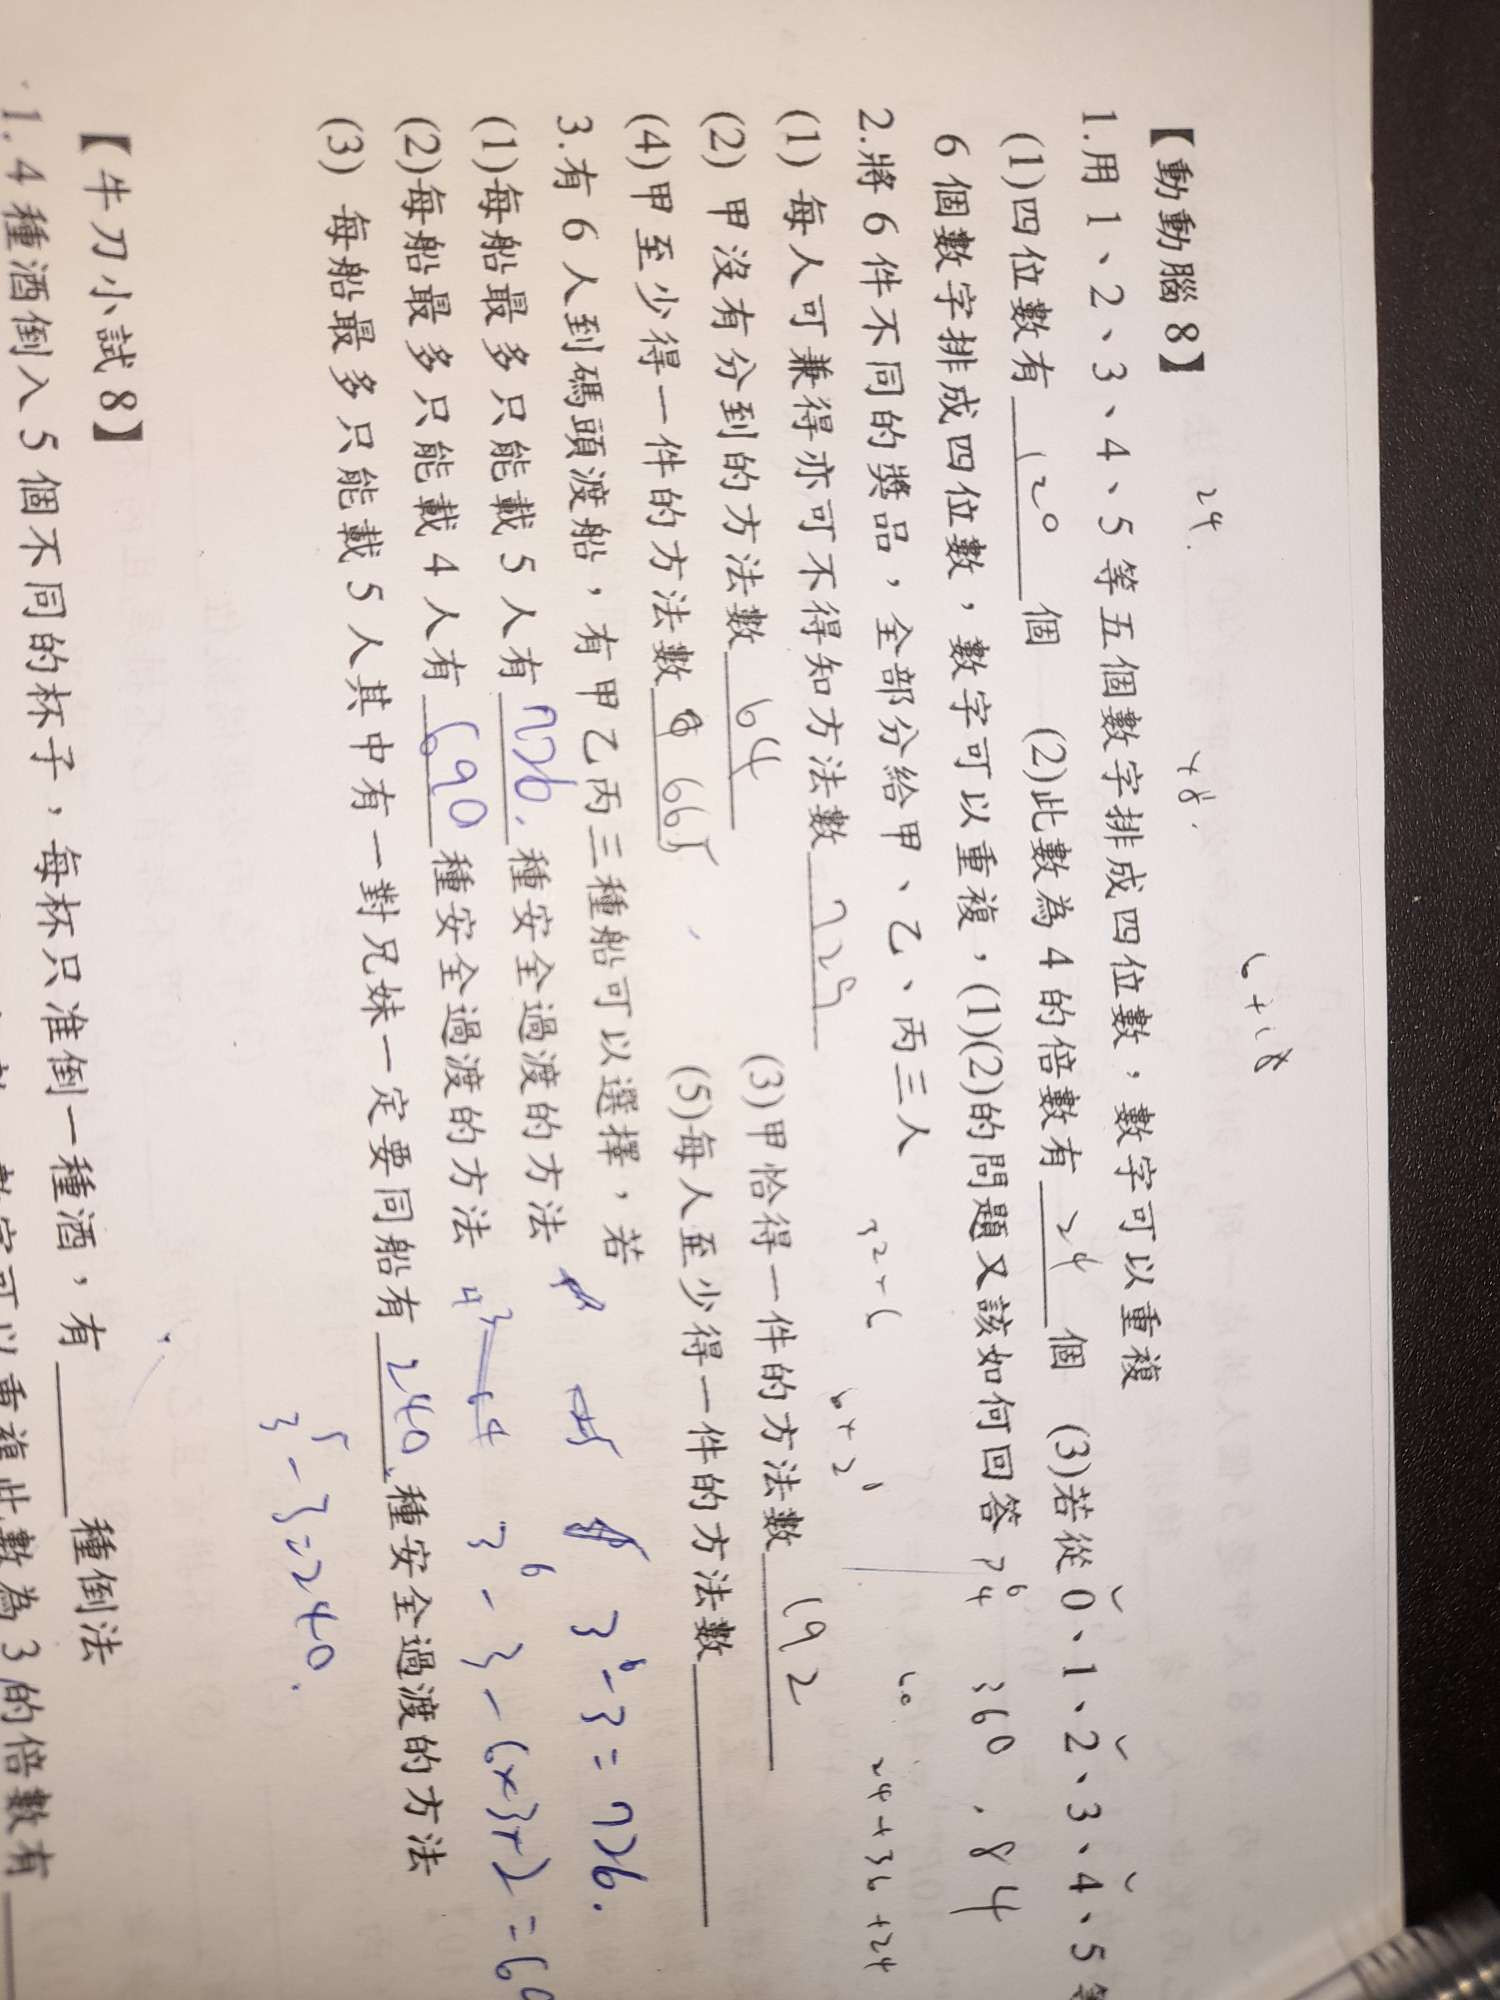 24.
48.
6+18
【動動腦8】
1.用1、2、3、4、5等五個數字排成四位數,數字可以重複
(1)四位數有120個 (2)此數為4的倍數有24個 (3)若從0、1、2、3、4、5等
6個數字排成四位數,數字可以重複,(1)(2)的問題又該如何回答? 360 . 84
24+36+24
2.將6件不同的獎品,全部分給甲、乙、丙三人
(1) 每人可兼得亦可不得知方法數729
(2) 甲沒有分到的方法數64 (3)甲恰得一件的方法數192
(4)甲至少得一件的方法數665 (5)每人至少得一件的方法數
3.有6人到碼頭渡船,有甲乙丙三種船可以選擇,若
(1)每船最多只能載5人有726.種安全過渡的方法 3⁶-3=726.
(2)每船最多只能載4人有690種安全過渡的方法 4³ 64 3⁶-3-(6×3×2)=69
(3) 每船最多只能載5人其中有一對兄妹一定要同船有240.種安全過渡的方法
3⁵-3=240.
【牛刀小試8】
1.4種酒倒入5個不同的杯子,每杯只准倒一種酒,有種倒法
數字可以重複此數為3的倍數有